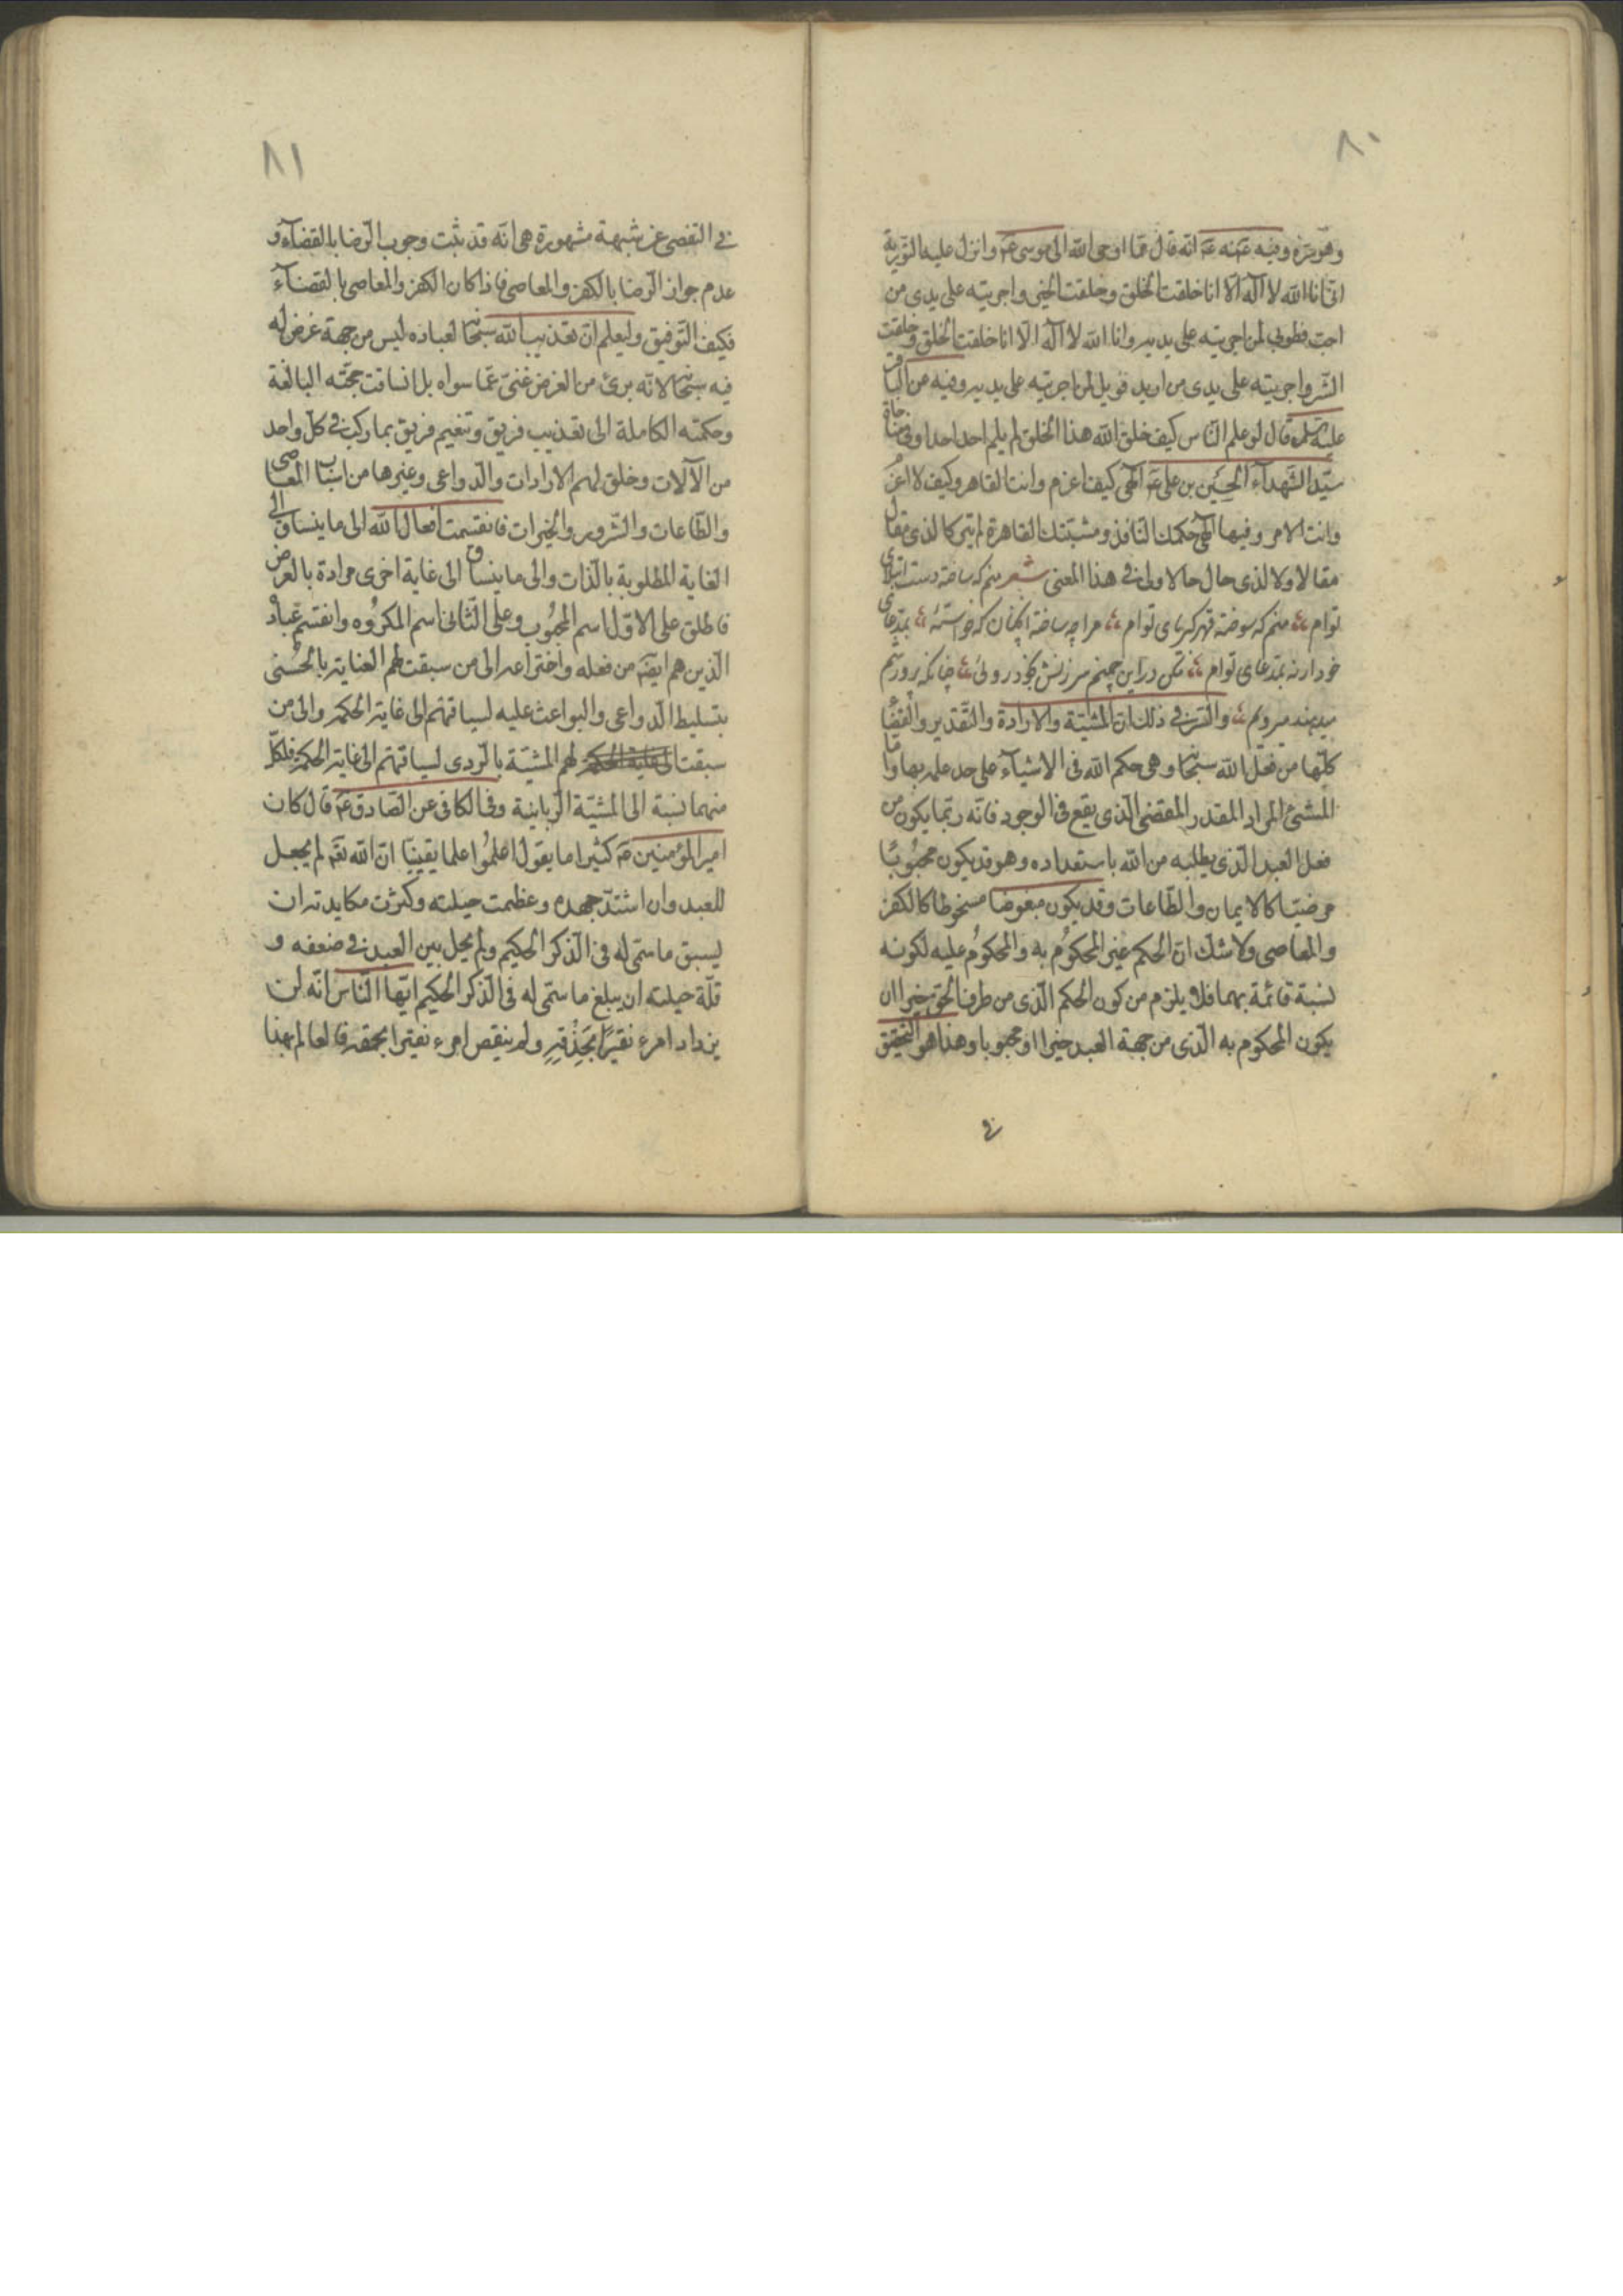 ٨٠
وهو خيره وفيه عنه ع انه قال مما اوحى الله الى موسى ع وانزل عليه التورية
انى انا الله لا اله الا انا خلقت الخلق وخلقت الخير واجريته على يدى من
احب فطوبى لمن اجريته على يديه وانا الله لا اله الا انا خلقت الخلق وخلقت
الشر واجريته على يدى من اريد فويل لمن اجريته على يديه وفيه عن الباقر
عليه قال لو علم الناس كيف خلق الله هذا الخلق لم يلم احد احدا وفى مناجاة
سيد الشهدآء الحسين بن على ع الهى كيف اعزم وانت القاهر وكيف لا اعزم
وانت الامر وفيها الهى حكمك النافذ ومشيتك القاهرة لم يتركا لذى مقال
مقالا ولا لذى حال حالا ولى فى هذا المعنى شعر منم كه ساخته دست ابتلاى
توام منم كه سوخته قهر كبرياى توام مرا چه ساخته آنچنان كه خواسته بمدعاى
خود ار نه بمدعاى توام مكن در اين چمنم سرزنش بخود روئى چنانكه پرورشم
ميدهند ميرويم والسر فى ذلك ان المشية والارادة والتقدير والقضا
كلها من فعل الله سبحا وهى حكم الله فى الاشيآء على حد علمه بها واما
المشئ المراد المقدر المقضى الذى يقع فى الوجود فانه ربما يكون من
فعل العبد الذى يطلبه من الله باستعداده وهو قد يكون محبوبا
مرضيا كالايمان والطاعات وقد يكون مبغوضا مسخوطا كالكفر
والمعاصى ولا شك ان الحكم غير المحكوم به والمحكوم عليه لكونه
نسبة قائمة بهما فلا يلزم من كون الحكم الذى من طرف الحق خيرا ان
يكون المحكوم به الذى من جهة العبد خيرا او محبوبا وهذا هو التحقيق
فى
٨١
فى التفصى عن شبهة مشهورة هى انه قد ثبت وجوب الرضا بالقضآء و
عدم جواز الرضا بالكفر والمعاصى فاذا كان الكفر والمعاصى بالقضآء
فكيف التوفيق وليعلم ان تعذيب الله سبحا لعباده ليس من جهة غرض له
فيه سبحا لانه برئ من الغرض غنى عما سواه بل انساقت حجته البالغة
وحكمته الكاملة الى تعذيب فريق وتنعيم فريق بما ركب فى كل واحد
من الآلات وخلق لهم الارادات والدواعى وغيرها من اسباب المعاصى
والطاعات والشرور والخيرات فانقسمت افعال الله الى ما ينساق الى
الغاية المطلوبة بالذات والى ما ينساق الى غاية اخرى مرادة بالعرض
فاطلق على الاول اسم المحبوب وعلى الثانى اسم المكروه وانقسم عباده
الذين هم ايضه من فعله واختراعه الى من سبقت لهم العناية بالحسنى
بتسليط الدواعى والبواعث عليه لسياقتهم الى غاية الحكمة والى من
سبقت لهم المشية بالردى لسياقتهم الى غاية الحكمة فلكل
منهما نسبة الى المشية الربانية وفى الكافى عن الصادق ع قال كان
امير المؤمنين ع كثيرا ما يقول اعلموا علما يقينيا ان الله تعه لم يجعل
للعبد وان اشتد جهده وعظمت حيلته وكثرت مكايدته ان
يسبق ما سمى له فى الذكر الحكيم ولم يحل بين العبد فى ضعفه و
قلة حيلته ان يبلغ ما سمى له فى الذكر الحكيم ايها الناس انه لن
يزداد امرء نقيرا بحذقه ولم ينقص امرء نقيرا بحمقه فالعالم بهذا